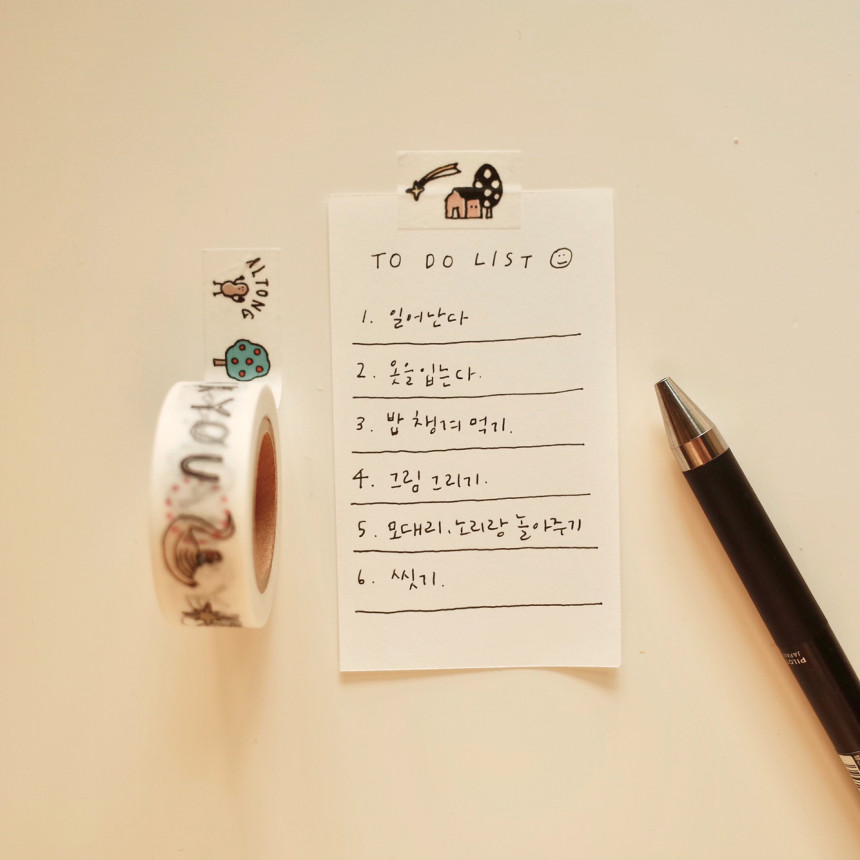 TO DO LIST
1. 일어난다
2. 옷을 입는다.
3. 밥 챙겨 먹기.
4. 그림 그리기.
5. 모대리, 노리랑 놀아주기
6. 씻기.
ALTONG
YOU
PILOT
JAPAN